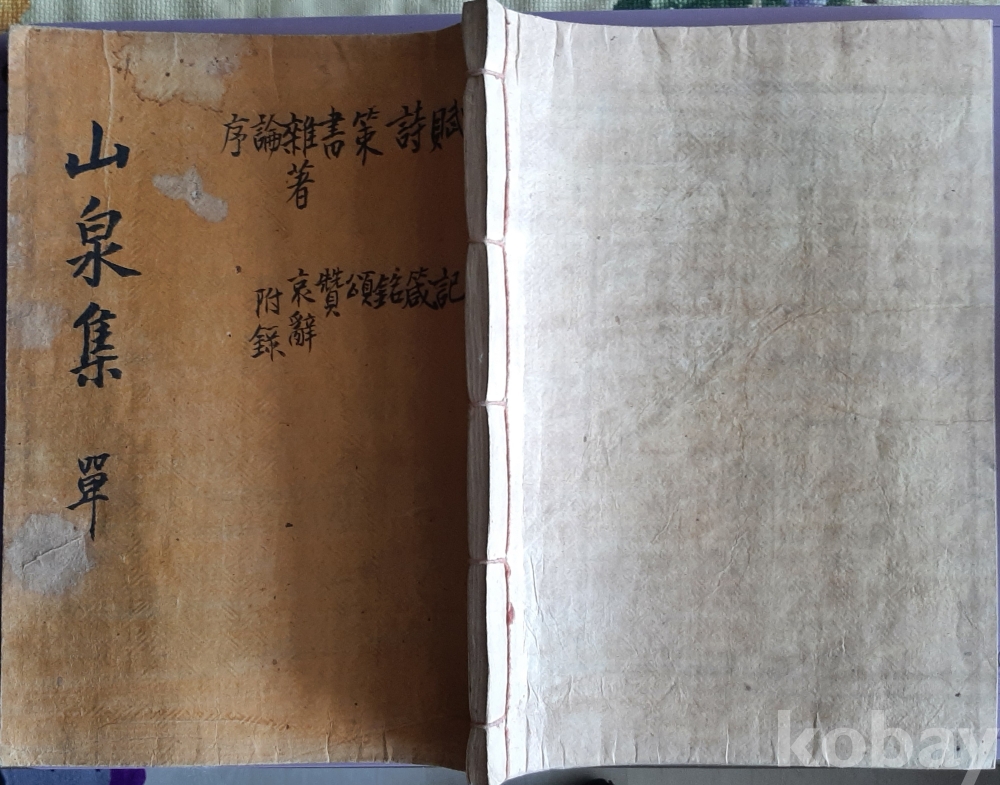 山泉集 單
賦
詩
策
書
雜著
論
序
記
箴
銘
頌
贊
哀辭
附錄
kobay